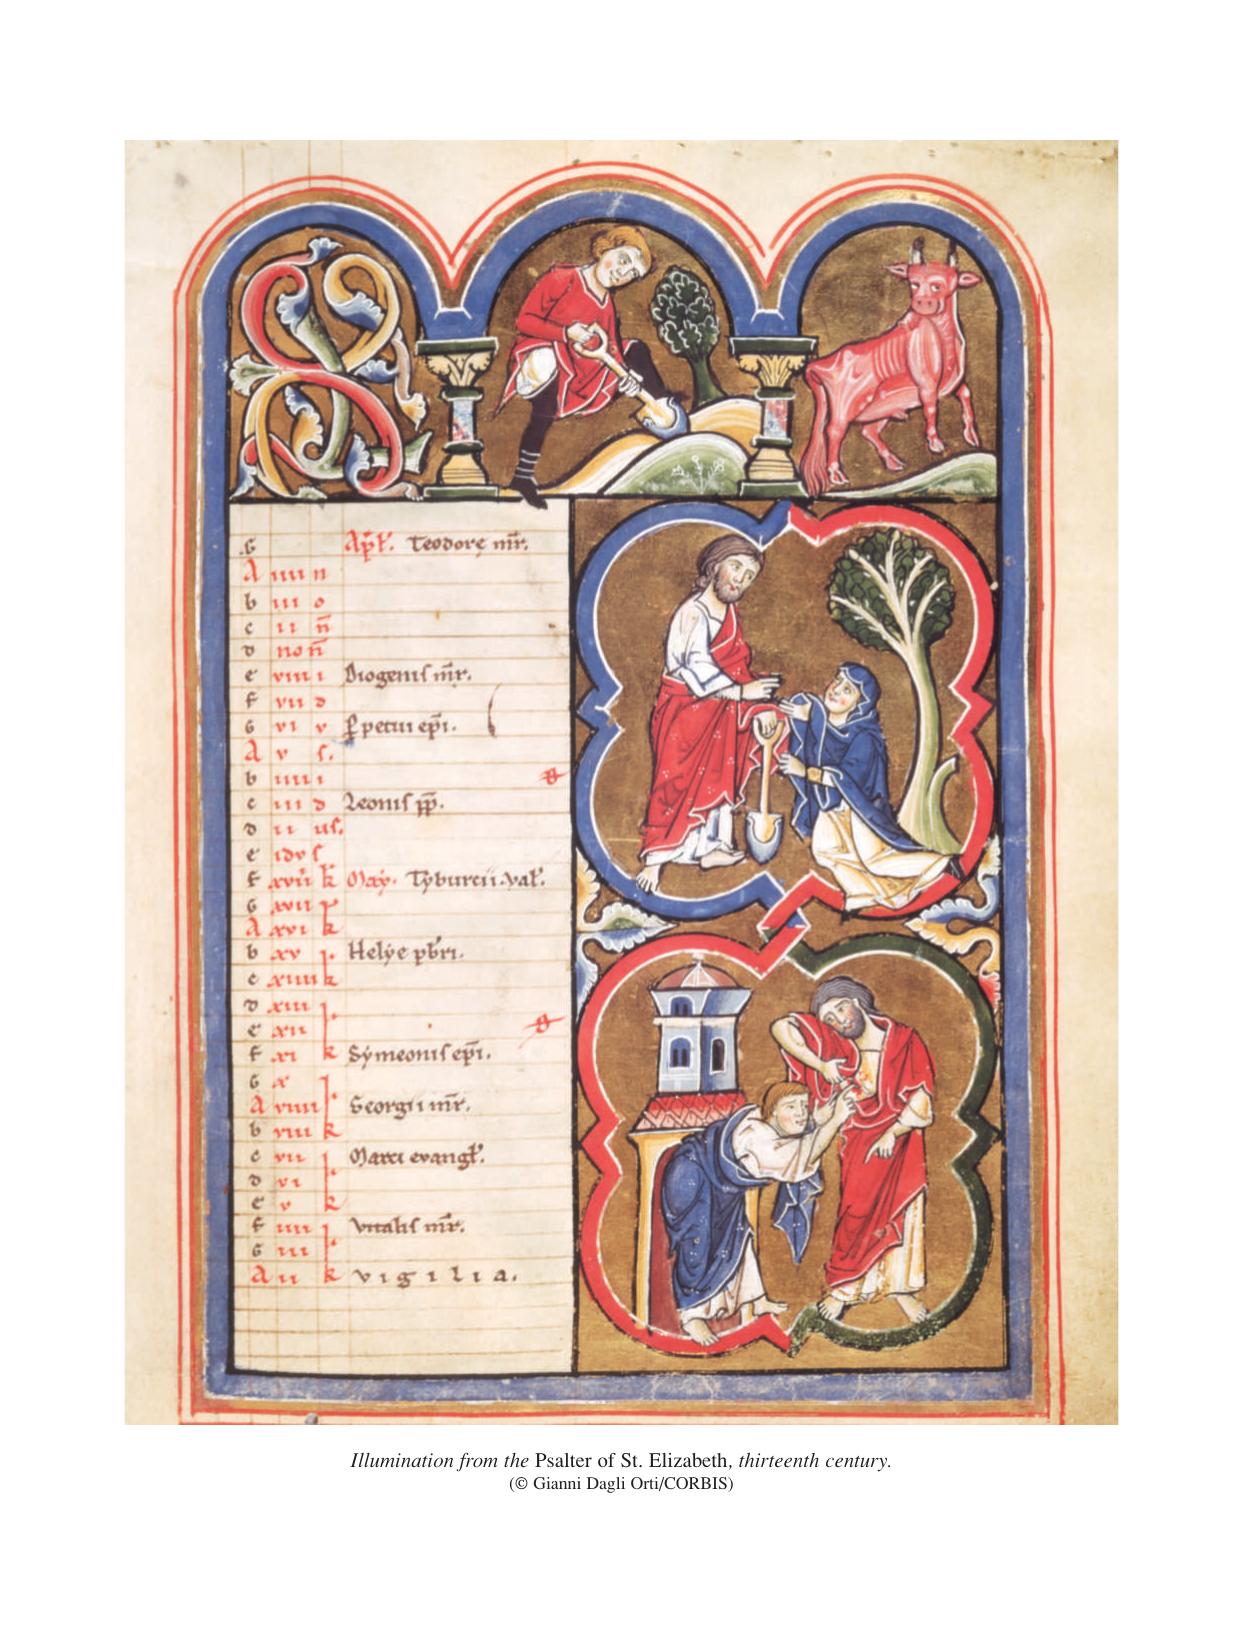 .G Ap̄l'. Teodorę m̄r.
A iiii n
b iii o
c ii n̄
d no n̄
e viii i Diogenis m̄r.
f vii d
G vi v P̲petui ep̄i.
A v s.
b iiii i
c iii d Leonis p̄p̄.
d ii us.
e idvs
f xviii k May. Tyburcii.val'.
G xvii
A xvi k
b xv Helye pb̄ri.
c xiiii k
d xiii
e xii
f xi k Symeonis ep̄i.
G x
A viiii Georgii m̄r.
b viii k
c vii Marci evangl'.
d vi
e v k
f iiii Vitalis m̄r.
G iii
A ii k vigilia.
Illumination from the Psalter of St. Elizabeth, thirteenth century.
(© Gianni Dagli Orti/CORBIS)